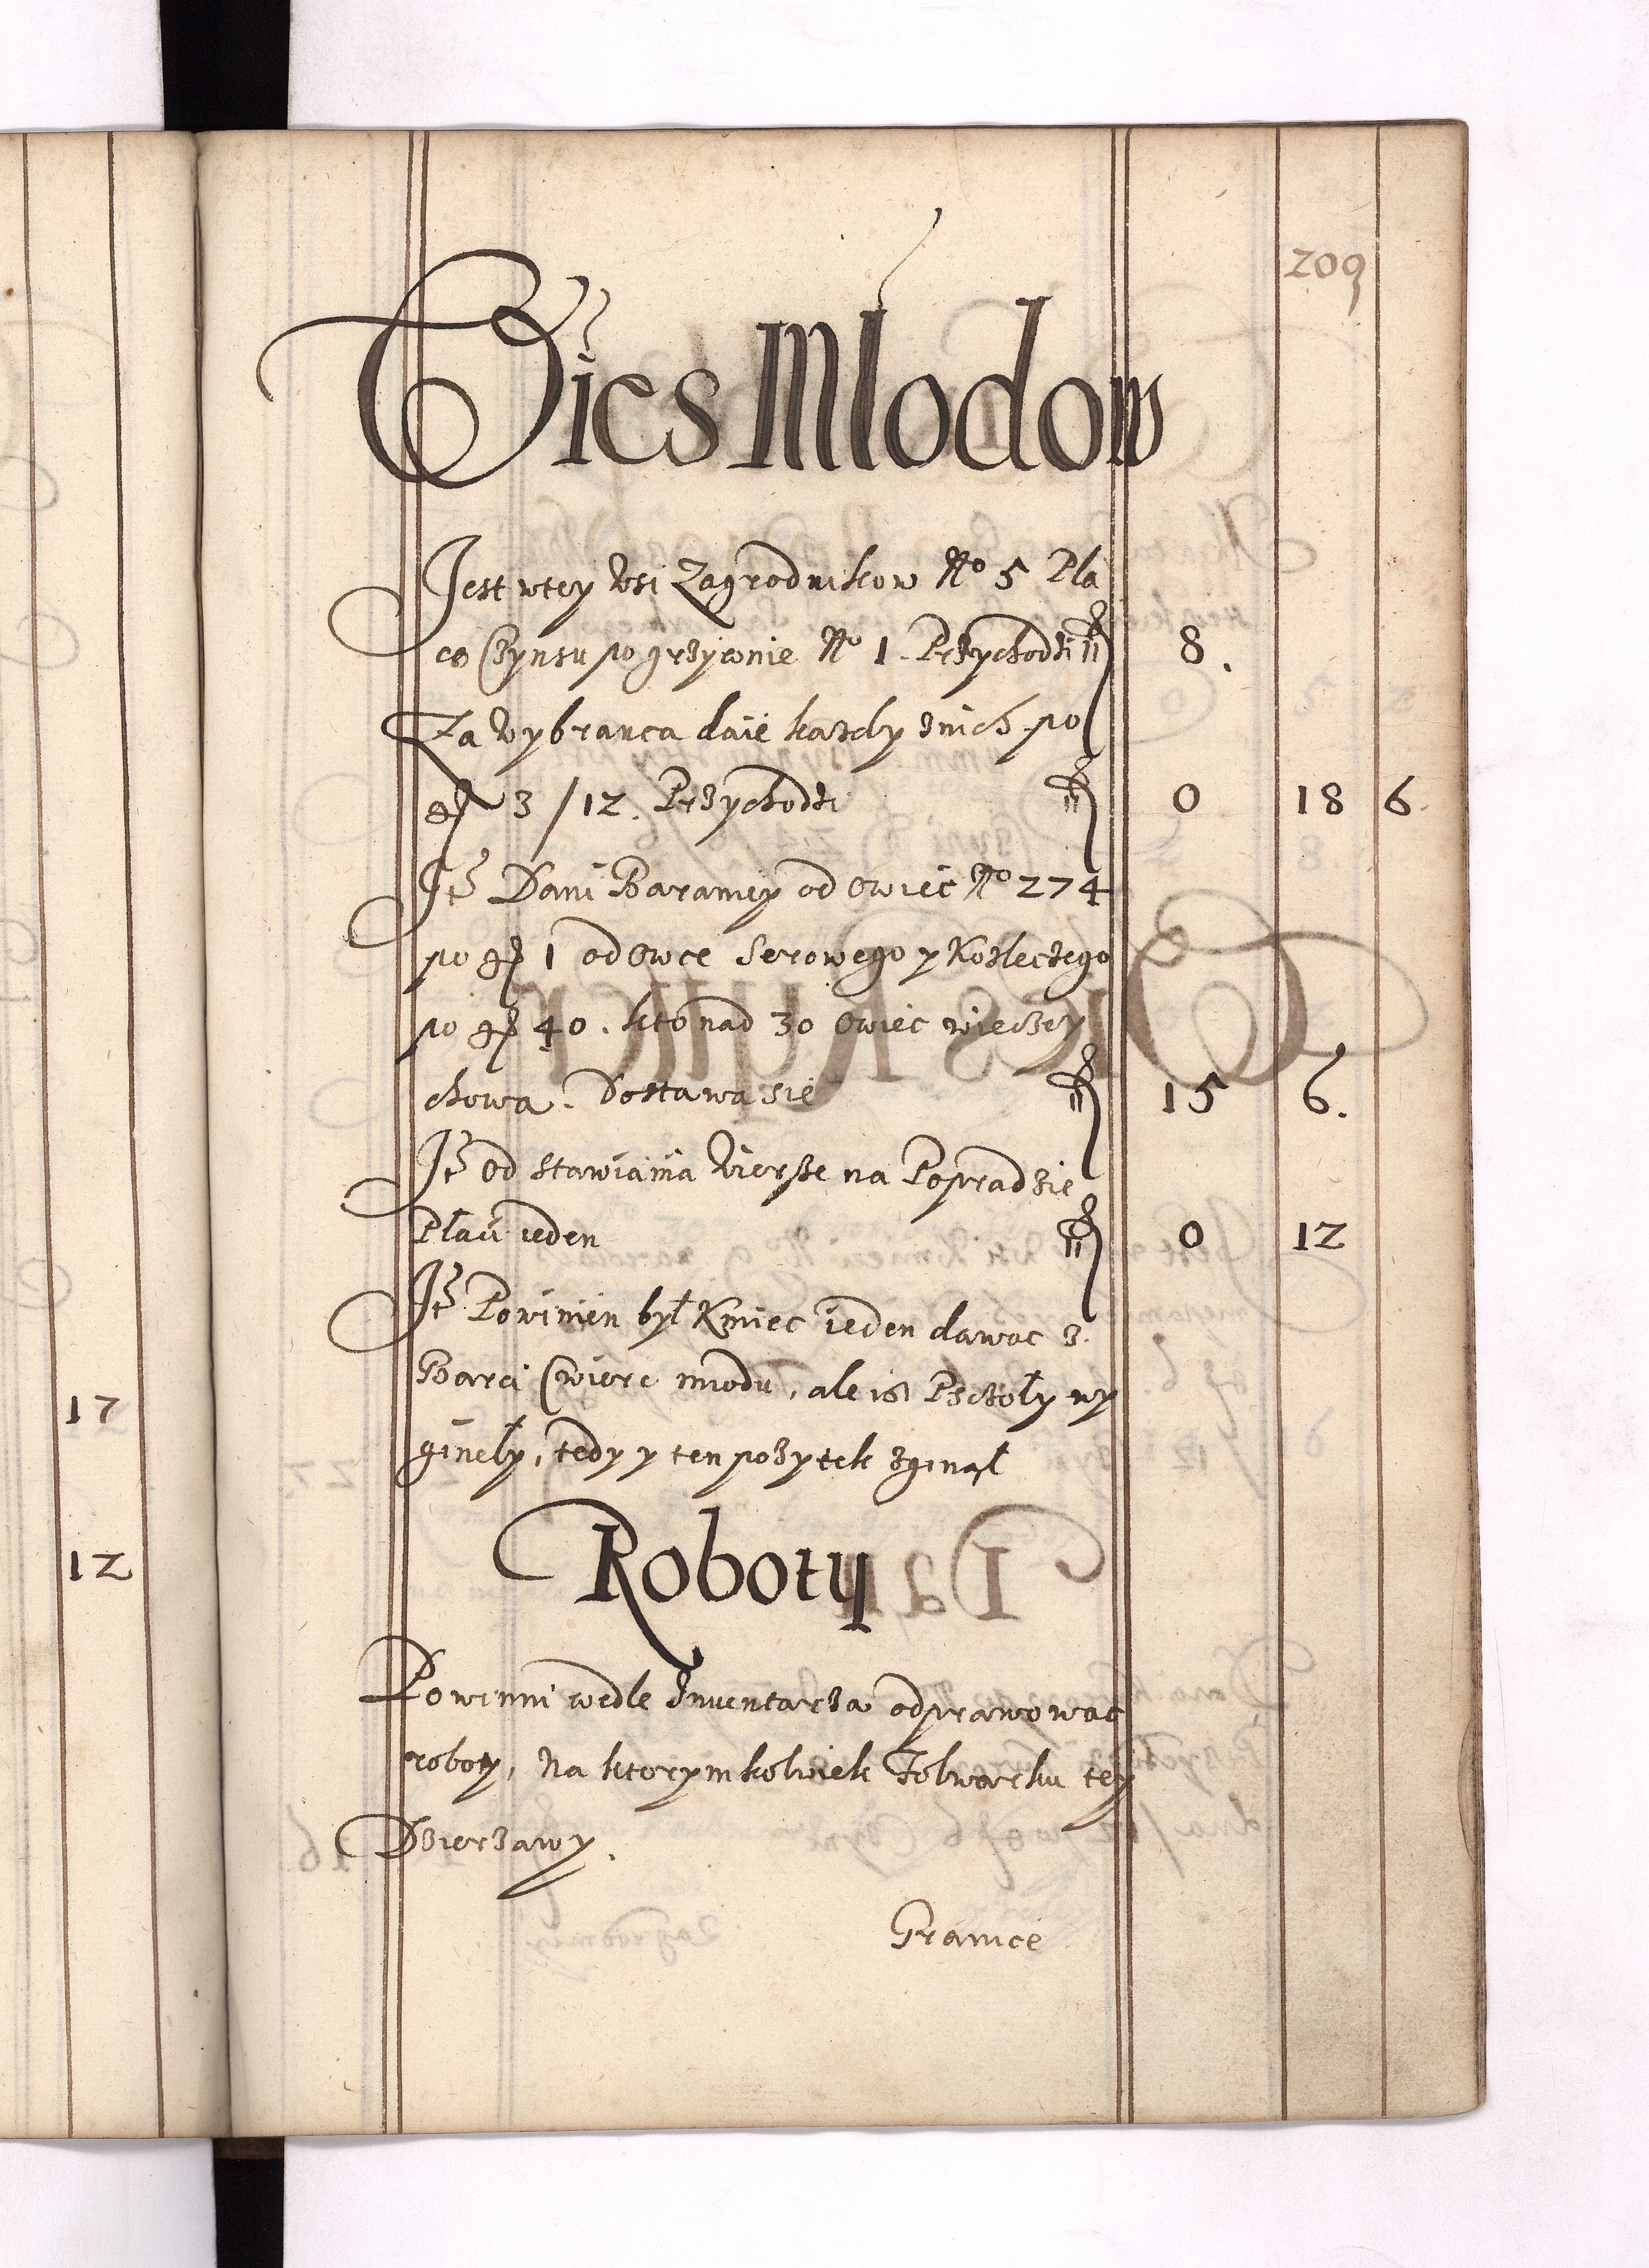 209
Wies Młodow
Jest wtey Wsi Zagrodnikow No 5 Pla
co Czynsu po grzywnie No 1. Przychodzi fl 8.
Za Wybranca daie kazdy znich po
gr 3/12. Przychodzi fl 0 18 6.
It Dani Baraniey od Owiec No 274
po gr 1 od Owce Serowego y Kozleczego
po gr 40. kto nad 30 Owiec wieczey
chowa. Dostawa sie fl 15 6.
It Od stawiania Wiersze na Popradzie
Płaci ieden fl 0 12
It Powinien był Kmiec ieden dawac z
Barci Cwierc miodu, ale isz Psczoły wy
gineły, tedy y ten pozytek zginął
Roboty
Powinni wedle Inventarza odprawowac
roboty, Na ktorymkolwiek Folwarku tey
Dzierzawy.
Granice
17
12